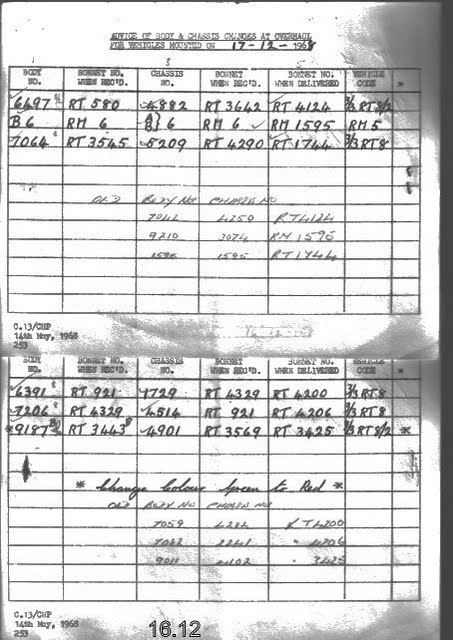 ADVICE OF BODY & CHASSIS CHANGES AT OVERHAUL
FOR VEHICLES MOUNTED ON 17-12-1968
BODY NO. BONNET NO. WHEN REC'D. CHASSIS NO. BONNET WHEN REC'D. BONNET NO. WHEN DELIVERED VEHICLE CODE *
6697 RT 580 4882 RT 3642 RT 4124 3/3 RT8/2
B6 RM 6 A} B} 6 RM 6 RM 1595 RM 5
7064 RT 3545 5209 RT 4290 RT 1744 3/3 RT8
OLD BODY NOS CHASSIS NO
7042 4250 RT4124
9210 3074 RM 1595
1595 1595 RT1744
C.13/CHP
14th May, 1968
253
BODY NO. BONNET NO. WHEN REC'D. CHASSIS NO. BONNET WHEN REC'D. BONNET NO. WHEN DELIVERED VEHICLE CODE *
6391 RT 921 1729 RT 4329 RT 4200 3/3 RT8
7206 RT 4329 4514 RT 921 RT 4206 3/3 RT8
*9187 RT 3443 4901 RT 3569 RT 3425 3/3 RT8/2 *
* Change Colour Green to Red *
OLD BODY NOS CHASSIS NOS
7059 4282 RT4200
2241 " 4206
4102 " 3425
C.13/CHP
14th May, 1968
253
16.12